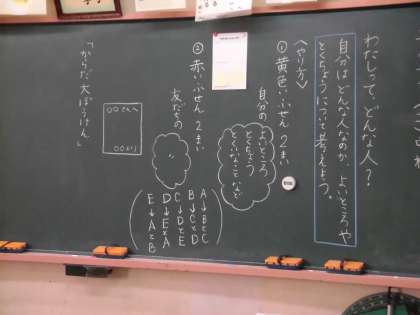 わたしって、どんな人？
自分はどんな人なのか、よいところや
とくちょうについて考えよう。
〈やり方〉
① 黄色いふせん 2まい
自分の
よいところ
とくちょう
とくいなこと など
② 赤いふせん 2まい
友だちの
〃
A→BとC
B→CとD
C→DとE
D→EとA
E→AとB
○○さんへ
○○より
「からだ大ぼうけん」